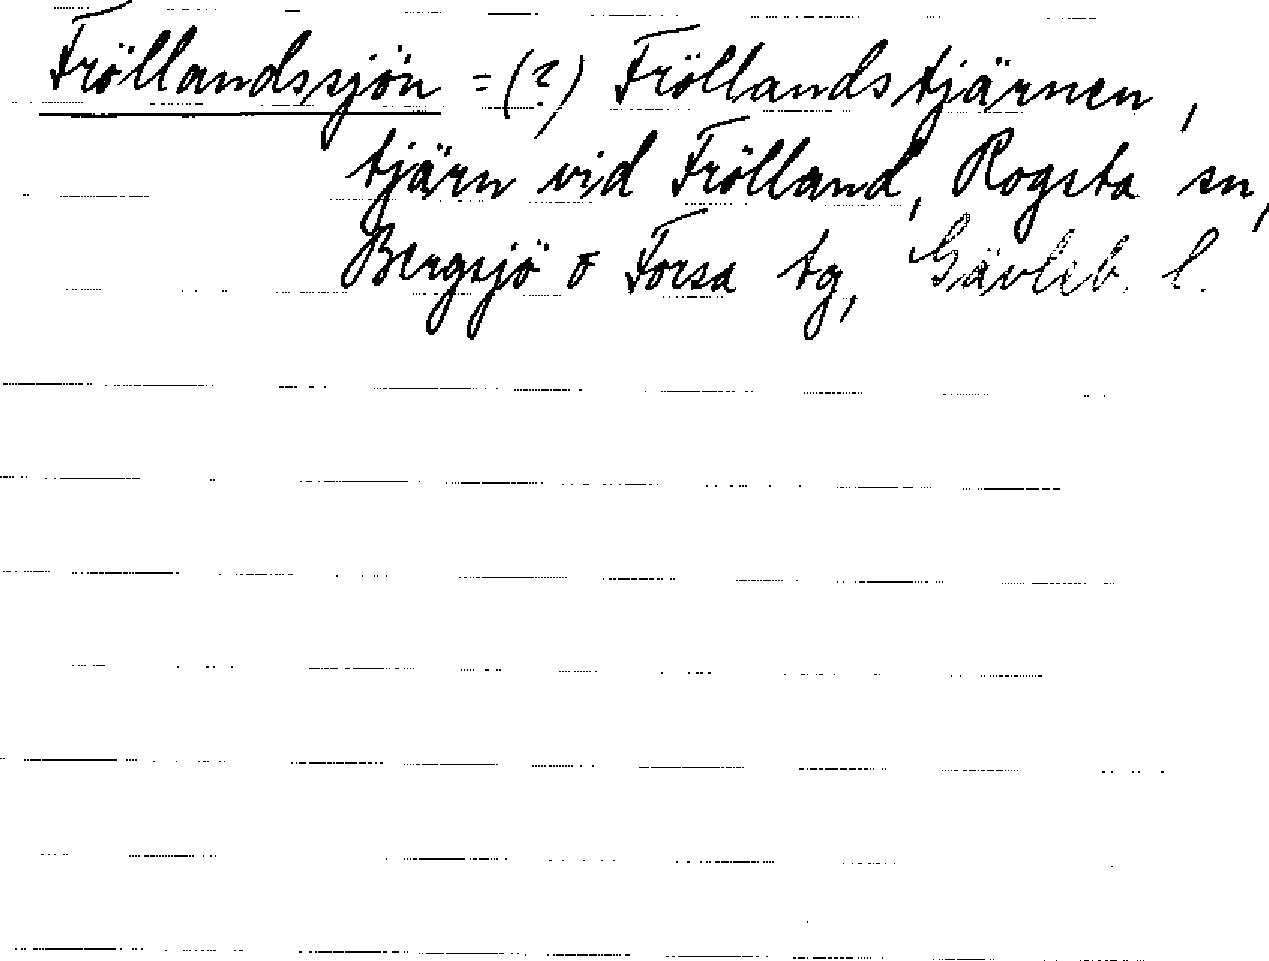 Fröllandssjön = (?) Fröllandstjärnen,
tjärn vid Frölland, Rogsta sn,
Bergsjö o Forsa tg, Gävleb. l.